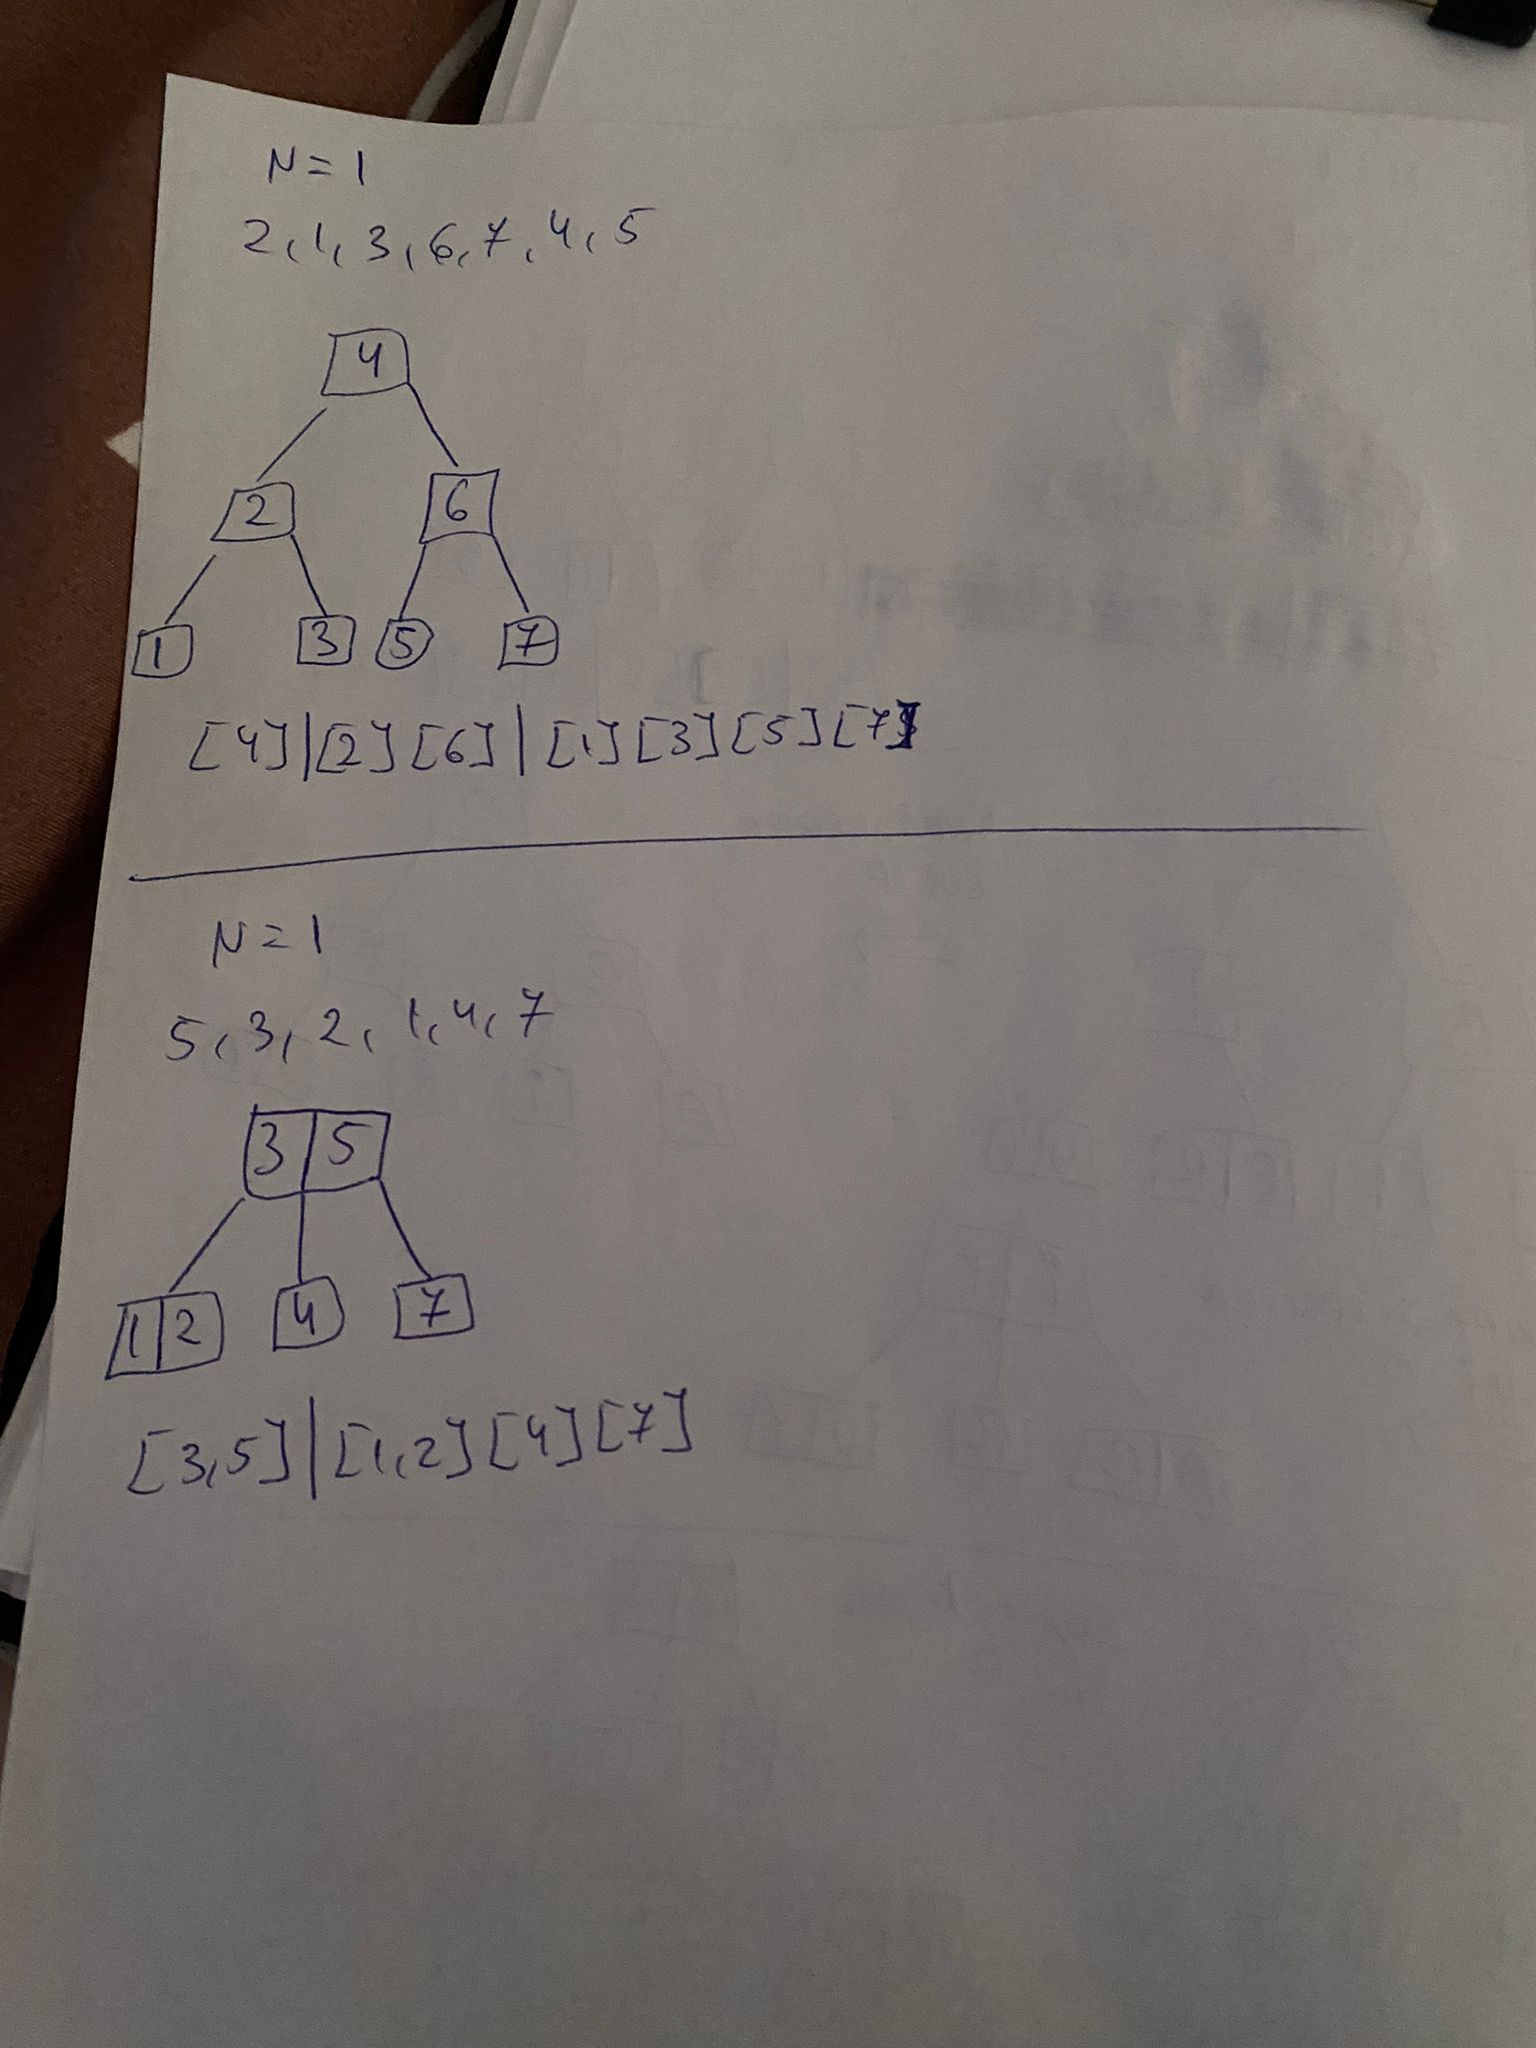 N = 1
2, 1, 3, 6, 7, 4, 5
4
2 6
1 3 5 7
[4]|[2][6]|[1][3][5][7]
N = 1
5, 3, 2, 1, 4, 7
3 5
1 2 4 7
[3,5]|[1,2][4][7]